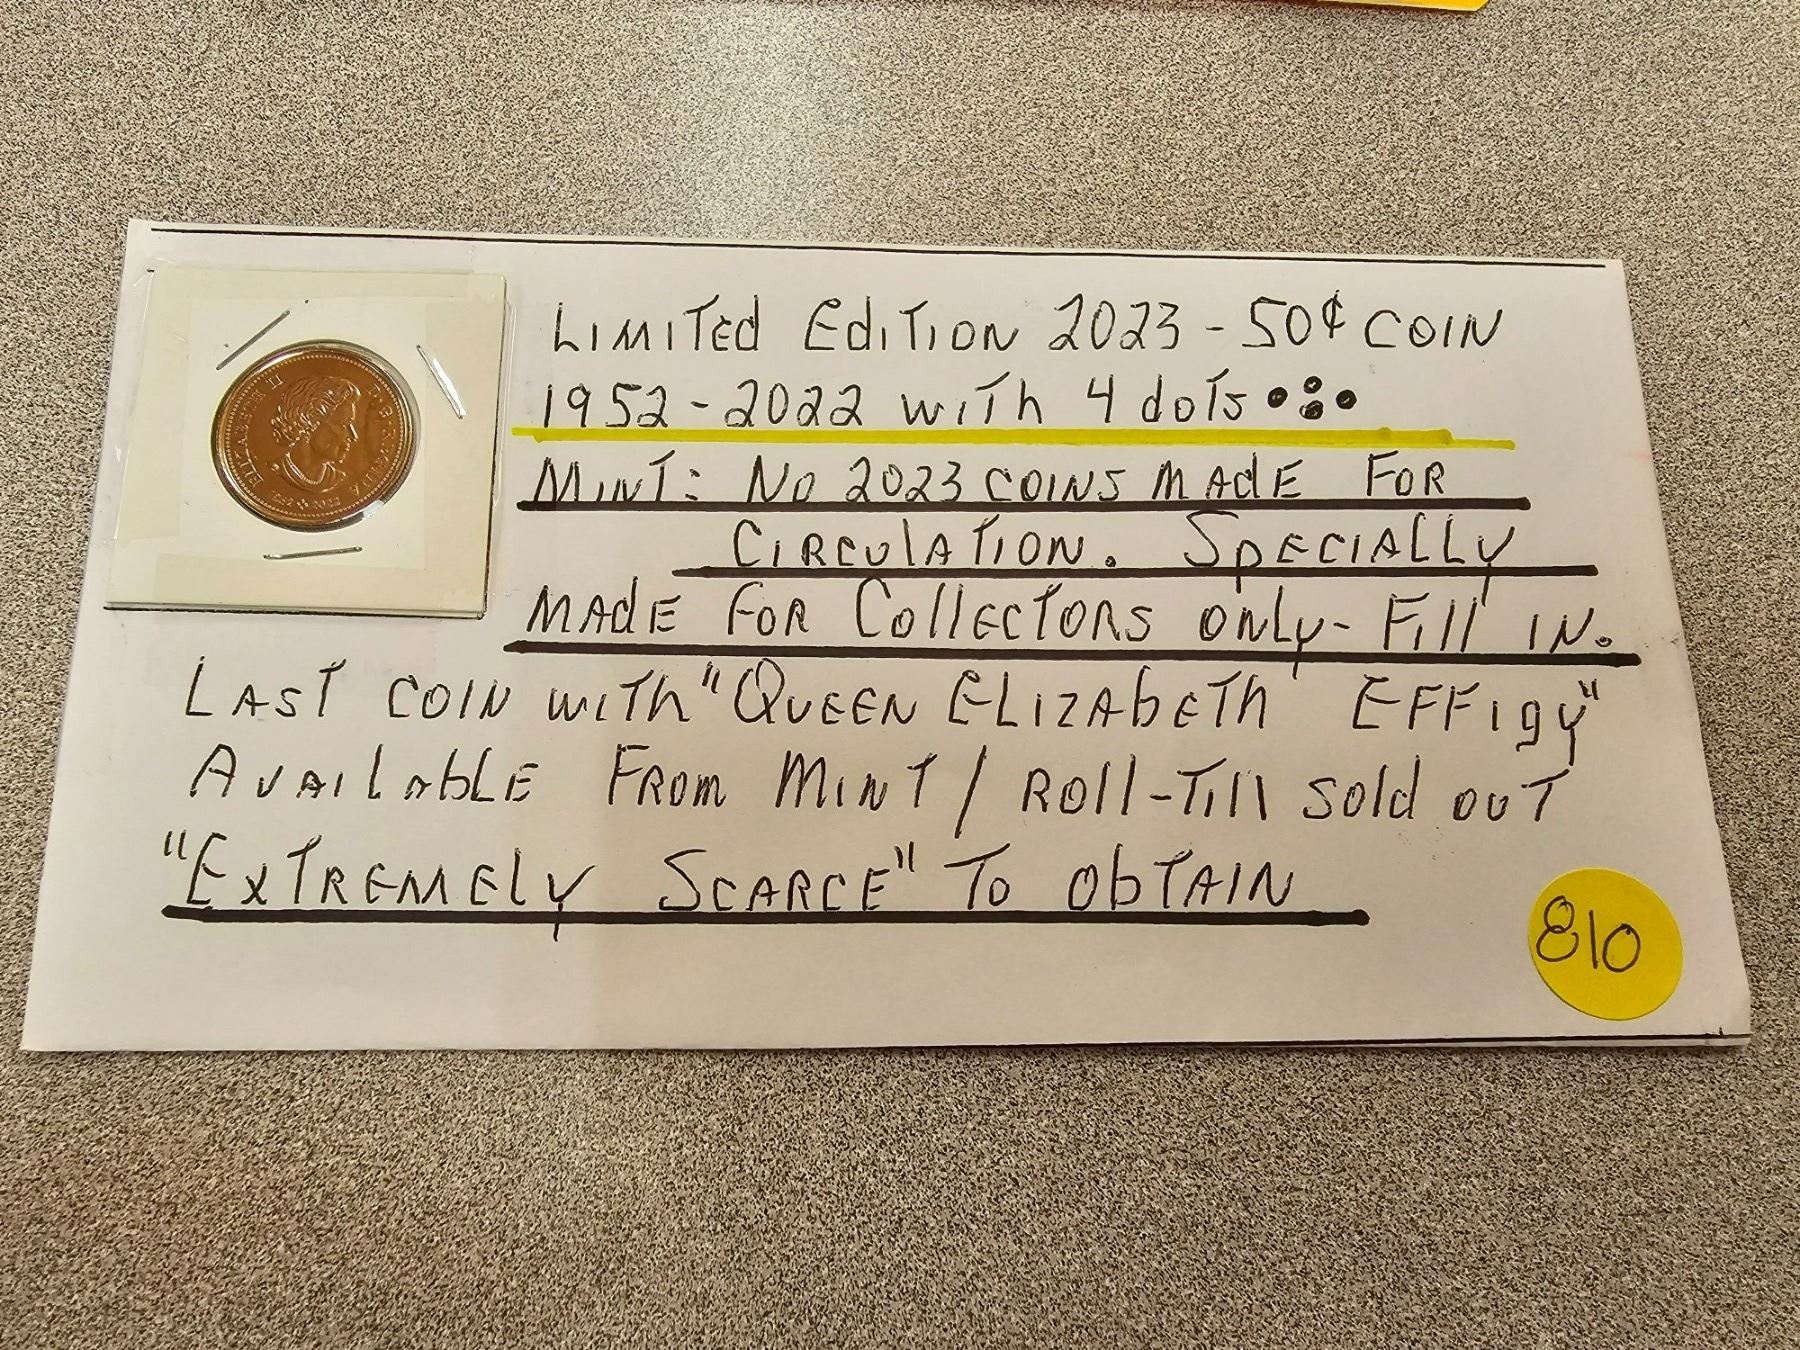 ELIZABETH II D·G·REGINA
1952 2022
LIMITED EDITION 2023 - 50¢ COIN
1952 - 2022 WITH 4 dOTS
MINT: NO 2023 COINS MADE FOR
CIRCULATION. SPECIALLY
MADE FOR COLLECTORS ONLY - FILL IN.
LAST COIN WITH "QUEEN ELIZABETH EFFIGY"
AVAILABLE FROM MINT / ROLL-TILL SOLD OUT
"EXTREMELY SCARCE" TO OBTAIN
810